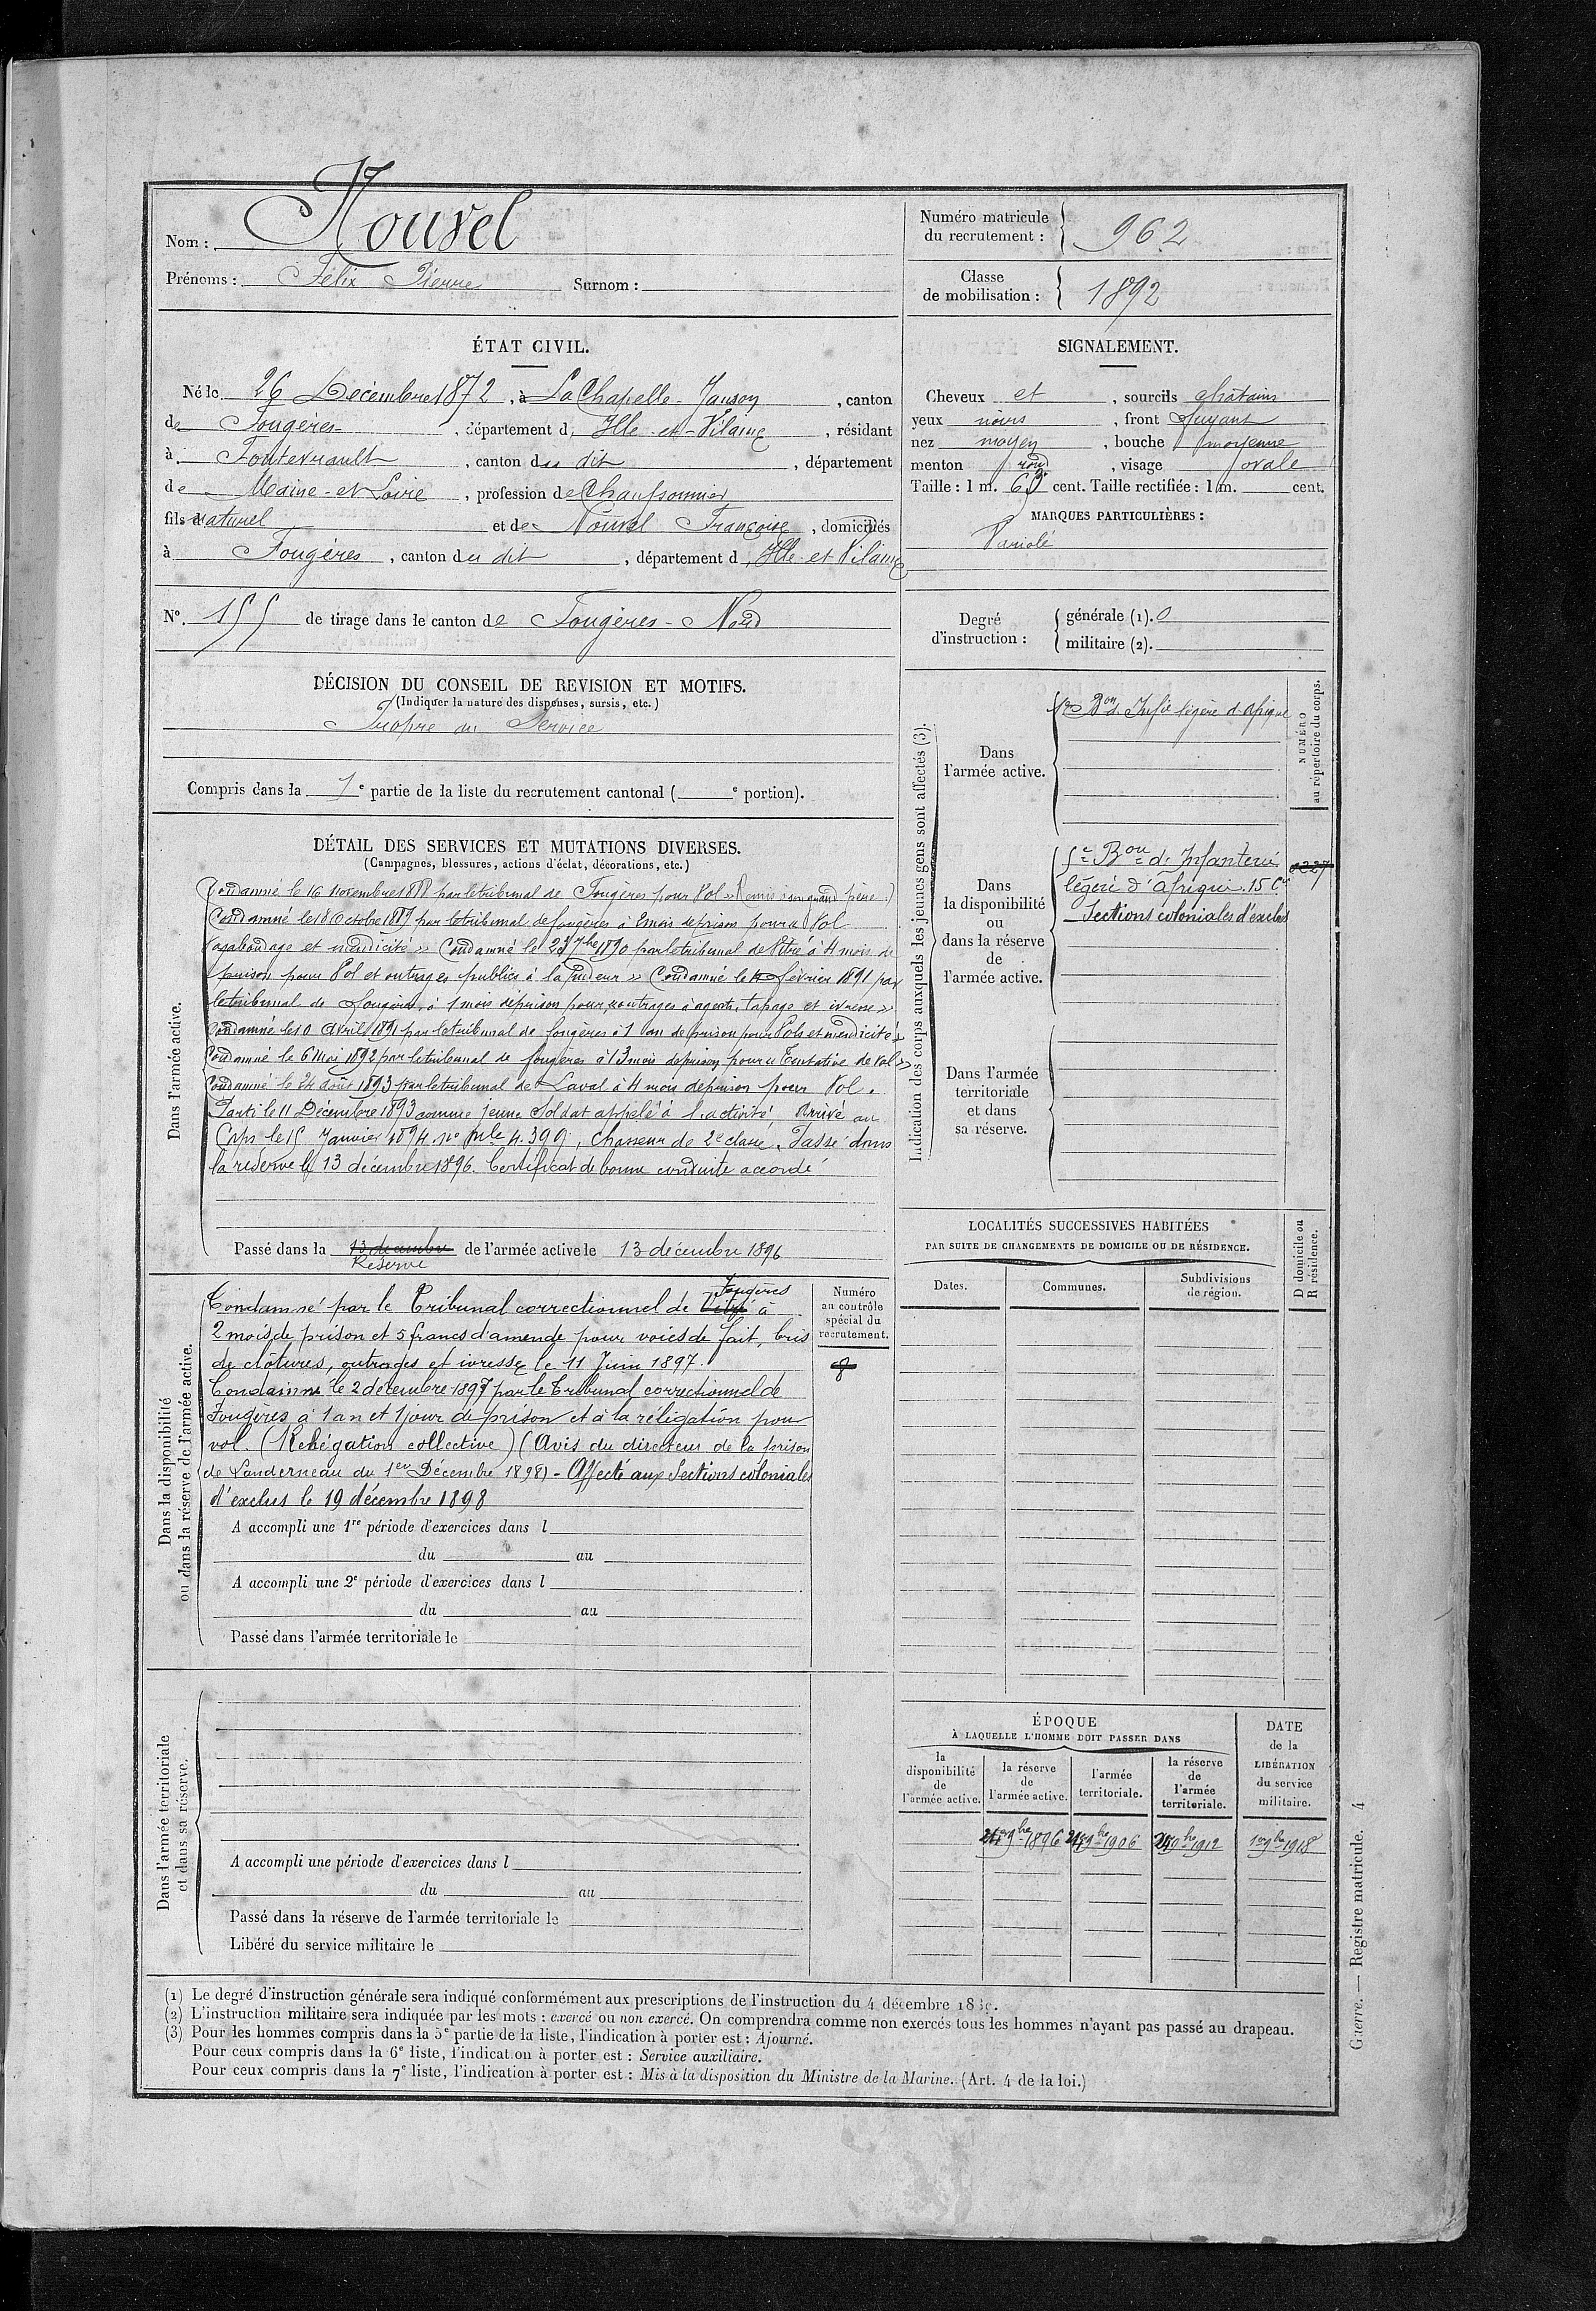 Nom : Nouvel
Prénoms : Félix Pierre Surnom :
Numéro matricule du recrutement : 962
Classe de mobilisation : 1892
ÉTAT CIVIL.
Né le 26 Décembre 1872, à La Chapelle-Janson, canton
de Fougères, département d'Ille-et-Vilaine, résidant
à Fontevrault, canton du dit, département
de Maine-et-Loire, profession de Chaussonnier
fils naturel et de Nouvel Françoise, domiciliés
à Fougères, canton du dit, département d'Ille-et-Vilaine
N° 155 de tirage dans le canton de Fougères-Nord
SIGNALEMENT.
Cheveux et, sourcils châtains
yeux noirs, front fuyant
nez moyen, bouche moyenne
menton rond, visage ovale
Taille : 1 m. cent. Taille rectifiée : 1 m. cent.
MARQUES PARTICULIÈRES :
Variolé
Degré d'instruction : générale (1). 0
militaire (2).
DÉCISION DU CONSEIL DE REVISION ET MOTIFS.
(Indiquer la nature des dispenses, sursis, etc.)
Propre au Service
Compris dans la 1e partie de la liste du recrutement cantonal ( e portion).
DÉTAIL DES SERVICES ET MUTATIONS DIVERSES.
(Campagnes, blessures, actions d'éclat, décorations, etc.)
Dans l'armée active.
Condamné le 16 novembre 1888 par le tribunal de Fougères pour Vol » Remis à son grand père.)
Condamné le 18 Octobre 1889 par le tribunal de fougères à 2 mois de prison pour « Vol
vagabondage et mendicité » Condamné le 23 7bre 1890 par le tribunal de Vitré à 4 mois de
prison pour Vol et outrages publics à la pudeur » Condamné le février 1891 par
le tribunal de fougères, à 1 mois de prison pour, outrages à agents, tapage et ivresse »
Condamné le 10 Avril 1891 par le tribunal de fougères à 1 an de prison pour Vols et mendicité »
Condamné le 6 Mai 1892 par le tribunal de fougères à 13 mois de prison pour « Tentative de vol »
Condamné le 24 août 1893 par le tribunal de Laval à 4 mois de prison pour Vol.
Parti le 11 Décembre 1893 comme jeune Soldat appelé à l'activité, Arrivé au
Corps le 15 Janvier 1894 no mle 4.399, Chasseur de 2e classe. Passé dans
la réserve le 13 décembre 1896. Certificat de bonne conduite accordé
Passé dans la 13 décembre Réserve de l'armée active le 13 décembre 1896
Indication des corps auxquels les jeunes gens sont affectés (3).
NUMÉRO au répertoire du corps.
Dans l'armée active. Bon d'Infie légère d'Afrique
Dans la disponibilité ou dans la réserve de l'armée active.
5e Bon d'Infanterie
légère d'Afrique. 15 Cie
Sections coloniales d'exclus
Dans l'armée territoriale et dans sa réserve.
Dans la disponibilité ou dans la réserve de l'armée active.
Condamné par le Tribunal correctionnel de Vitré Fougères à
2 mois de prison et 5 francs d'amende pour voies de fait, bris
de clôtures, outrages et ivresse le 11 Juin 1897.
Condamné le 2 décembre 1897 par le Tribunal correctionnel de
Fougères à 1 an et 1 jour de prison et à la réligation pour
vol. (Relégation collective) (Avis du directeur de la prison
de Landerneau du 1er Décembre 1898) - Affecté aux Sections coloniales
d'exclus le 19 décembre 1898
Numéro au contrôle spécial du recrutement.
8
A accompli une 1re période d'exercices dans l
du au
A accompli une 2e période d'exercices dans l
du au
Passé dans l'armée territoriale le
LOCALITÉS SUCCESSIVES HABITÉES
PAR SUITE DE CHANGEMENTS DE DOMICILE OU DE RÉSIDENCE.
Dates. Communes. Subdivisions de région.
D domicile ou R résidence.
Dans l'armée territoriale et dans sa réserve.
A accompli une période d'exercices dans l
du au
Passé dans la réserve de l'armée territoriale le
Libéré du service militaire le
ÉPOQUE
À LAQUELLE L'HOMME DOIT PASSER DANS
la disponibilité de l'armée active.
la réserve de l'armée active.
l'armée territoriale.
la réserve de l'armée territoriale.
DATE de la LIBÉRATION du service militaire.
9bre 1896 9bre 1906 9bre 1912 1er 9bre 1918
(1) Le degré d'instruction générale sera indiqué conformément aux prescriptions de l'instruction du 4 décembre
(2) L'instruction militaire sera indiquée par les mots : exercé ou non exercé. On comprendra comme non exercés tous les hommes n'ayant pas passé au drapeau.
(3) Pour les hommes compris dans la 5e partie de la liste, l'indication à porter est : Ajourné.
Pour ceux compris dans la 6e liste, l'indication à porter est : Service auxiliaire.
Pour ceux compris dans la 7e liste, l'indication à porter est : Mis à la disposition du Ministre de la Marine. (Art. 4 de la loi.)
Guerre. — Registre matricule. 4